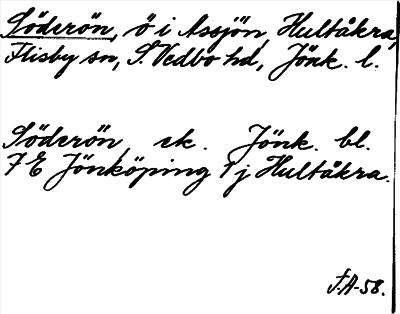 Söderön, ö i Assjön, Hultåkra,
Flisby sn, S. Vedbo hd, Jönk. l.
Söderön ek. Jönk. bl.
7 E Jönköping 1 j Hultåkra.
F.A-58.